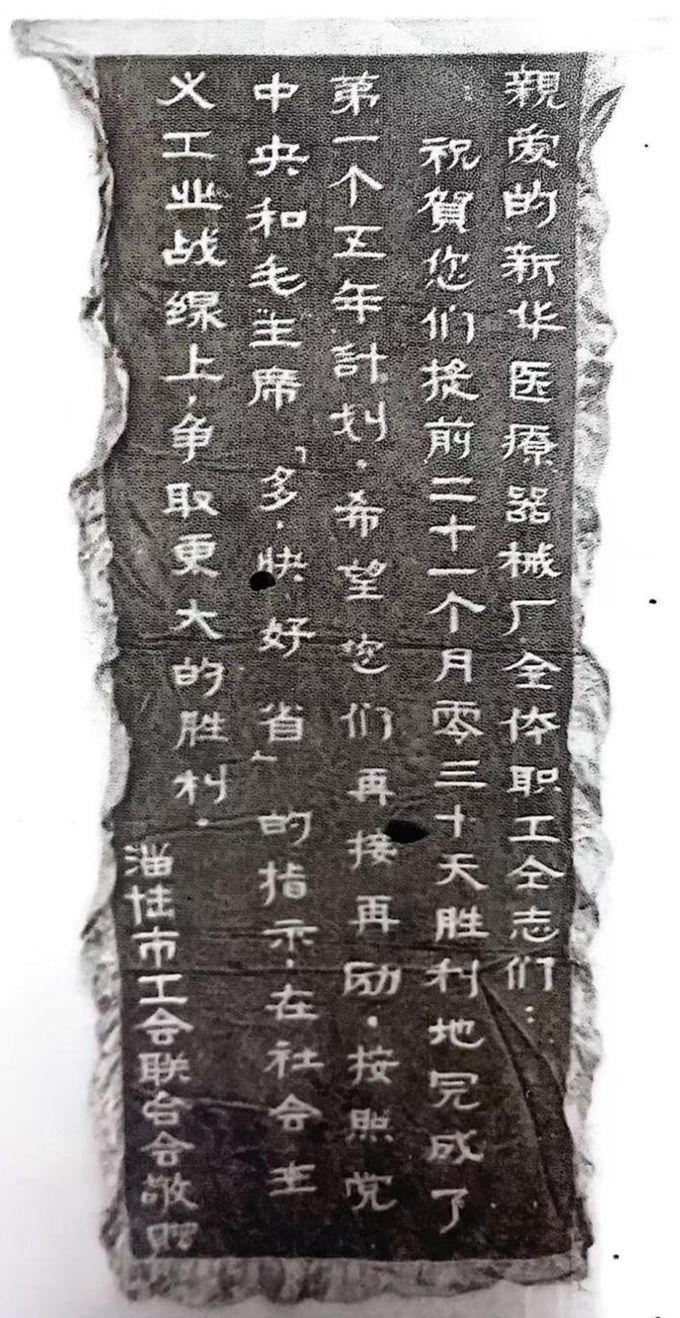 親爱的新华医療器械厂全体职工仝志们：
祝賀您们提前二十一个月零三十天胜利地完成了
第一个五年計划。希望您们再接再励。按照党
中央和毛主席「多．快．好．省」的指示．在社会主
义工业战缐上，争取更大的胜利．
淄博市工会联合会敬赠